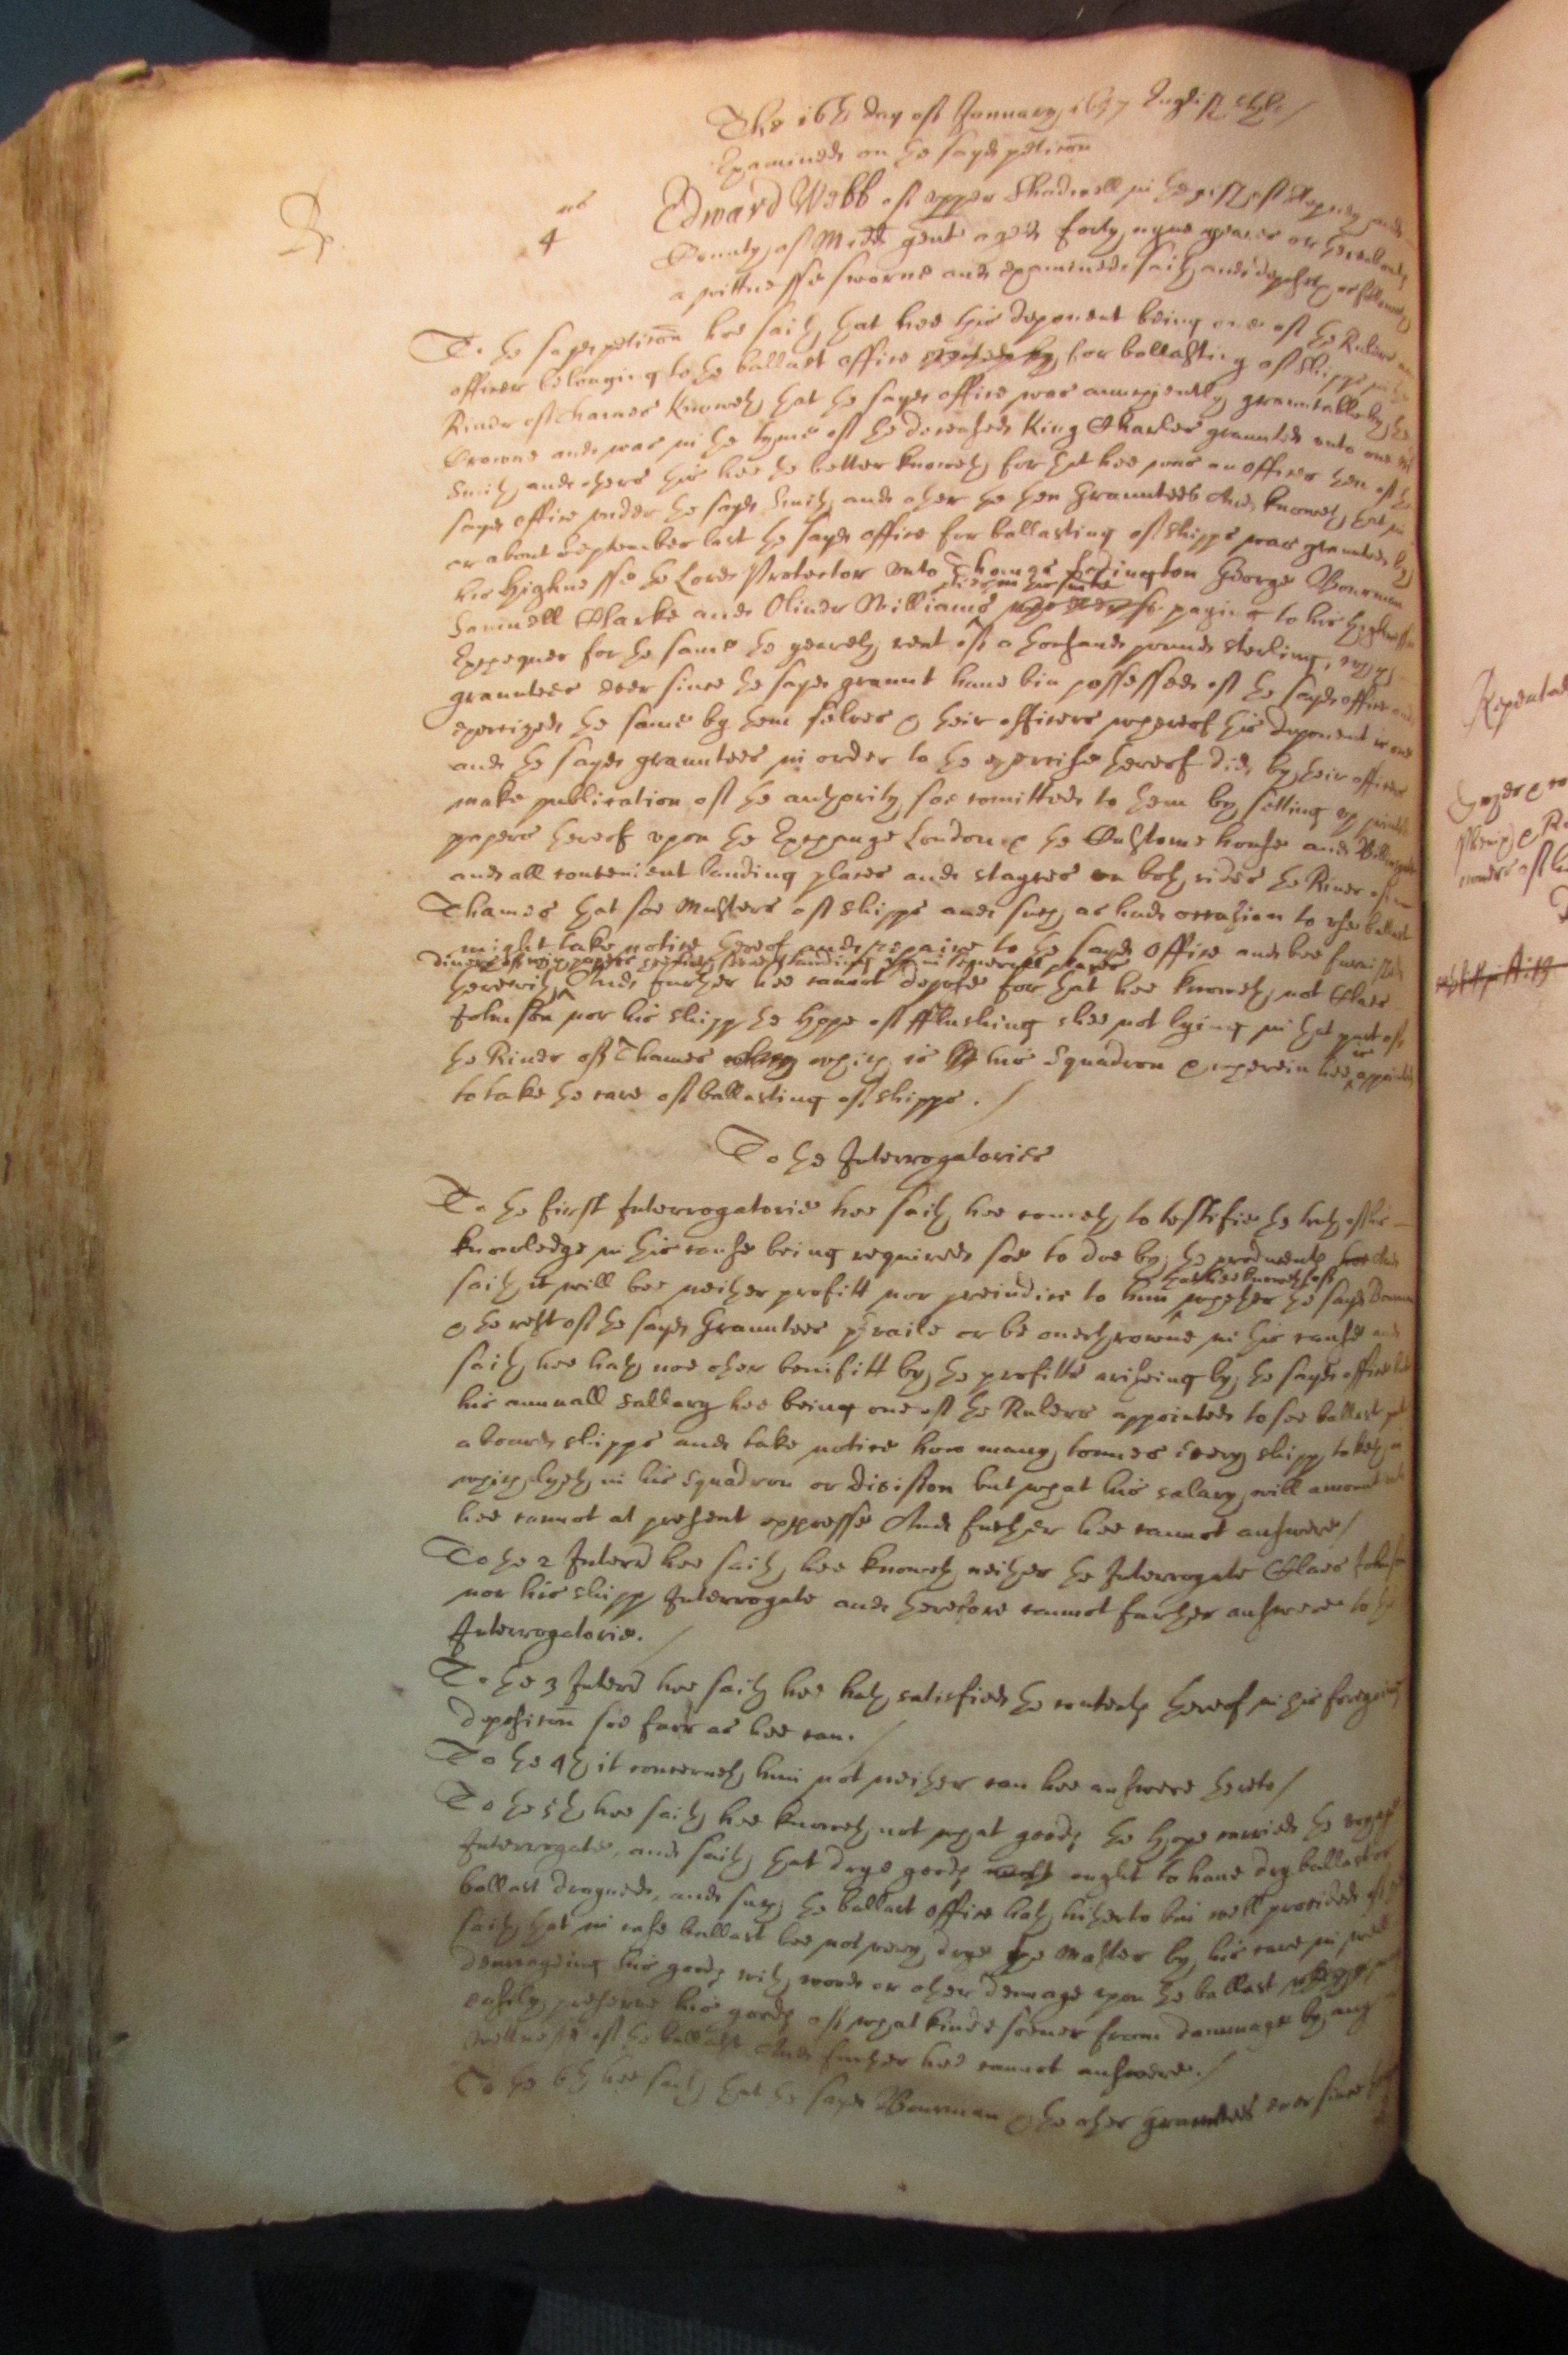 The 16th day of January 1657 English style /
Examined on the sayd petition
R.
4us
Edward Webb of upper Shadwell in the pish of Stepney and
County of Midd gent aged forty nyne yeares or thereabouts
a wittnesse sworne and examined saith and deposeth as followeth
To the sayd petition hee saith that hee this deponent being one of the Rulers and
officer belonging to the ballast office for ballasting of shipps in the
River of Thames knoweth that the sayd office was anciently grauntable by the
Crowne and was in the tyme of the deceased King Charles graunted unto one
Smith and others this hee the better knoweth for that hee was an officer then of the
sayd office under the sayd Smith and other the then Grauntees And knoweth that in
or about September last the sayd office for ballasting of shipps was graunted by
his Highnesse the Lord Protector unto Thomas George Bowrman
Samuell Clarke and Oliver Williams paying to his highnesse
Exchequer for the same the yearely rent of a thousand pounds sterling, which
grauntees ever since the sayd graunt have bin possessed of the sayd office and
exercized the same by them selves & their officers whereof this deponent is one
and the sayd grauntees in order to the exercise thereof did by their officers
make publication of the authority soe comitted to them by setting up printed
papers thereof upon the Exchange London & the Custome house and Billinsgate
and all convenient landing places and stayres on both sides the River of
Thames that soe Masters of shipps and such as had occasion to use ballast
might take notice thereof and repaire to the sayd office and bee furnished
divers of which papers hee hath seene standing up in severall places
therewith And further hee cannot depose for that hee knoweth not Claes
Johnson nor his shipp the Hope of fflushing shee not lying in that part of
the River of Thames which is his Squadron & wherein hee is appointed
to take the care of ballasting of shipps. /
To the Interrogatories
To the first Interrogatorie hee saith hee cometh to testifie the truth of his
knowledge in this cause being required soe to doe by the producents And
saith it will bee neither profitt nor prejudice to him that hee knoweth of whether the sayd Bowrman
& the rest of the sayd Grauntees prevaile or be overthrowne in this cause and
saith hee hath noe other benifitt by the profitts ariseing by the sayd office but
his annuall sallary hee being one of the Rulers appointed to see ballast put
aboard shipps and take notice how many tonnes every shipp taketh in
which lyeth in his Squadron or division but what his salary will amount unto
hee cannot at present expresse And further hee cannot answere /
To the 2 Interr hee saith hee knoweth neither the Interrogate Claes Johnson
nor his shipp Interrogate and therefore cannot further answere to the
Interrogatorie. /
To the 3 Interr hee saith hee hath satisfied the contents thereof in his foregoing
deposition soe farr as hee can. /
To the 4th it concerneth him not neither can hee answere thereto /
To the 5th hee saith hee knoweth not what goods the Hope carried the voyage
Interrogate, and saith that drye goods ought to have dry ballast or
ballast drayned, and such the ballast office hath hitherto bin well provided of And
saith that in case ballast bee not very drye the Master by his care in
damageing his goods with wood or other dennage upon the ballast
easily preserve his goods of what kinde soever from dammage by any
wettnesse of the ballast And further hee cannot answere. /
To the 6th hee saith that the sayd Bowrman & the other Grauntees ever since